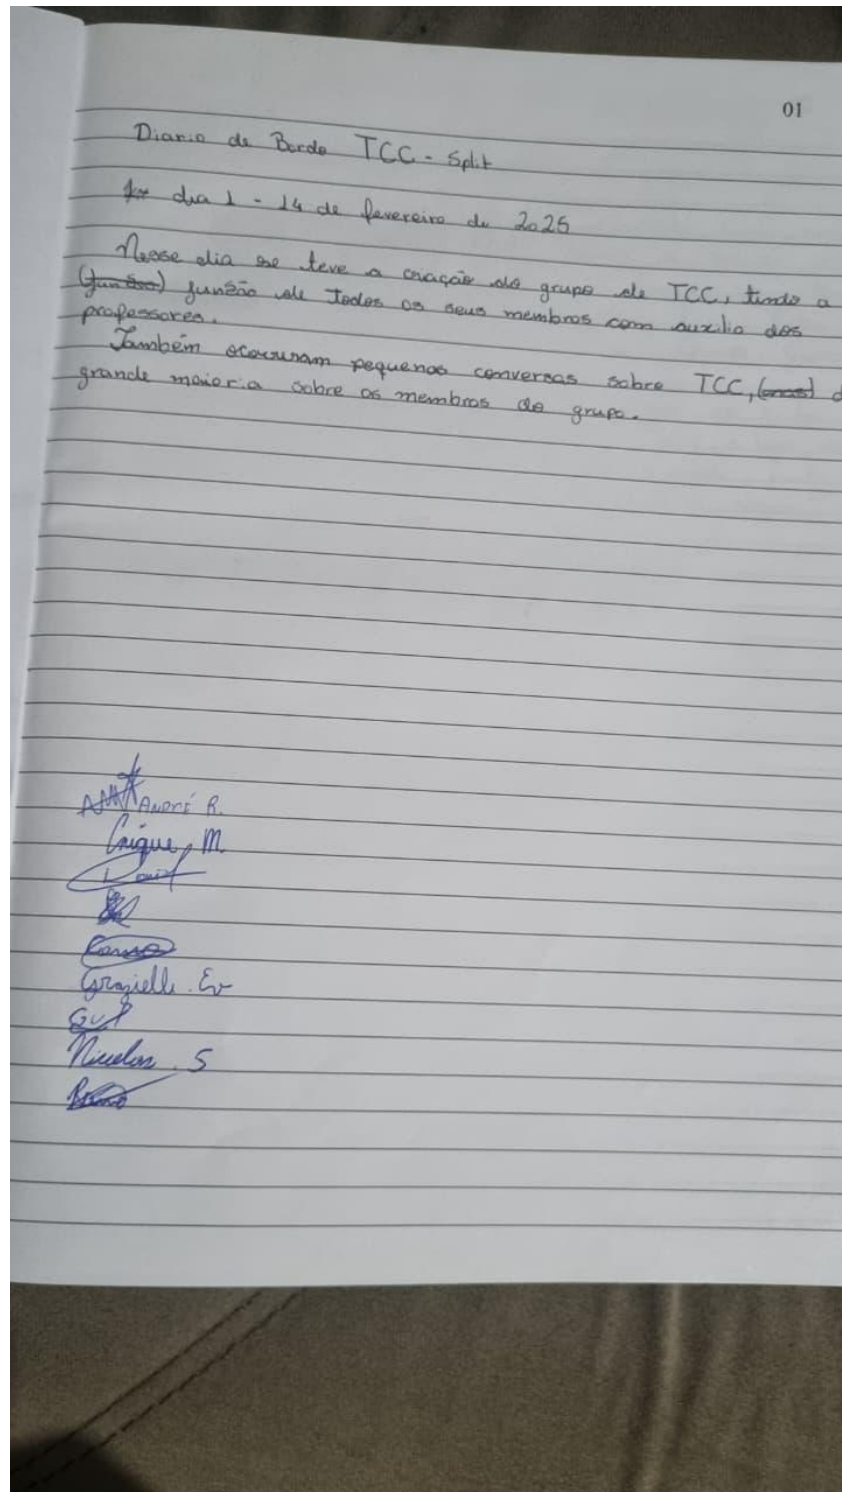 01
Diario de Bordo TCC - Split
dia 1 - 14 de fevereiro de 2025
Nesse dia se teve a criação do grupo de TCC, tendo a
(junsão) junsão de Todos os seus membros com auxilio dos
professores.
Também ocorreram pequenas conversas sobre TCC, d
grande maioria sobre os membros do grupo.
André R.
Caique, M.
Davi
Grazielle. Ev
Gui
Nicolas. S